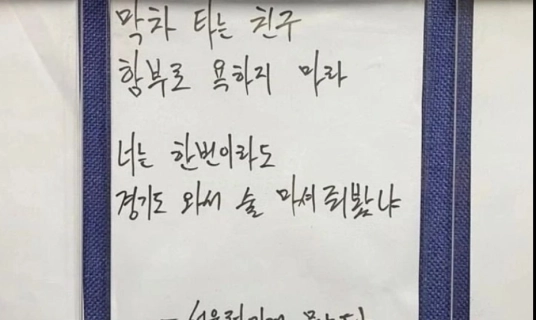 막차 타는 친구
함부로 욕하지 마라
너는 한번이라도
경기도 와서 술 마셔줘봤냐